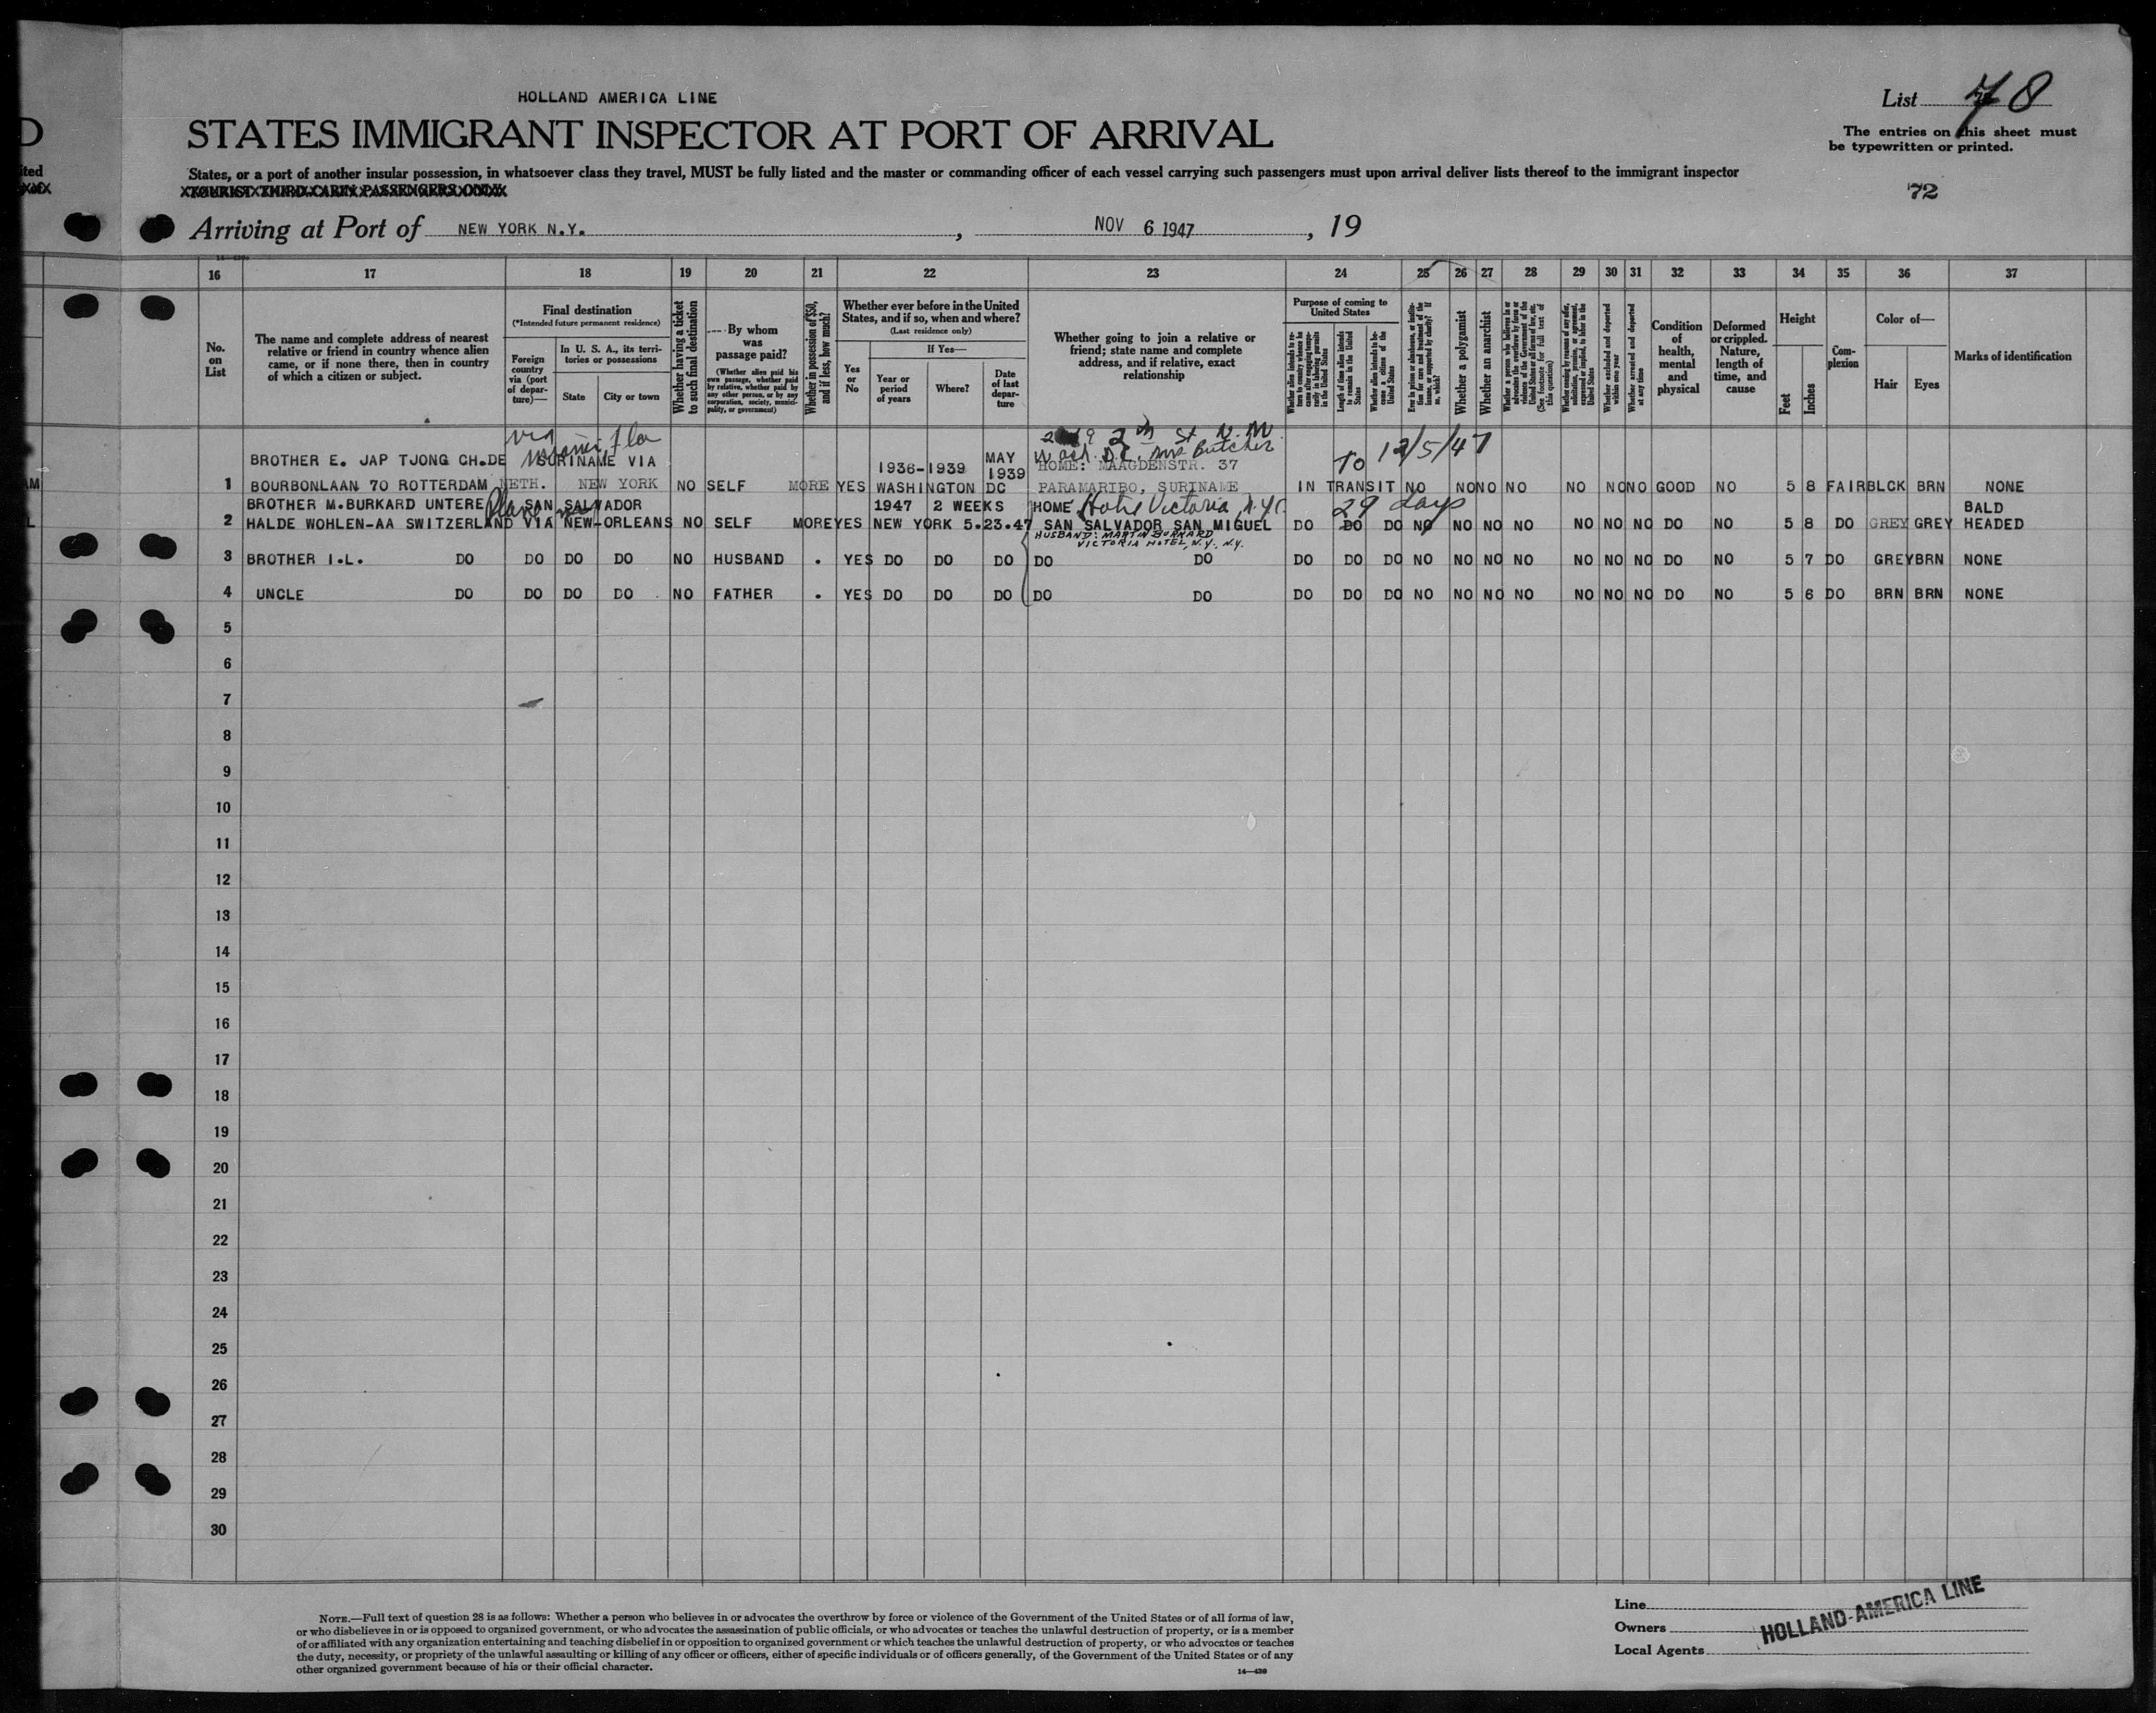 HOLLAND AMERICA LINE
List 78
STATES IMMIGRANT INSPECTOR AT PORT OF ARRIVAL
The entries on this sheet must
be typewritten or printed.
States, or a port of another insular possession, in whatsoever class they travel, MUST be fully listed and the master or commanding officer of each vessel carrying such passengers must upon arrival deliver lists thereof to the immigrant inspector
TOURIST THIRD CABIN PASSENGERS ONLY
72
Arriving at Port of NEW YORK N.Y. , NOV 6 1947 , 19
16 17 18 19 20 21 22 23 24 25 26 27 28 29 30 31 32 33 34 35 36 37
No. on List
The name and complete address of nearest
relative or friend in country whence alien
came, or if none there, then in country
of which a citizen or subject.
Final destination
(*Intended future permanent residence)
Foreign country via (port of departure)—
In U. S. A., its territories or possessions
State
City or town
Whether having a ticket to such final destination
By whom was passage paid?
(Whether alien paid his own passage, whether paid by relative, whether paid by any other person, or by any corporation, society, municipality, or government)
Whether in possession of $50, and if less, how much?
Whether ever before in the United
States, and if so, when and where?
(Last residence only)
Yes or No
If Yes—
Year or period of years
Where?
Date of last departure
Whether going to join a relative or
friend; state name and complete
address, and if relative, exact
relationship
Purpose of coming to
United States
Length of time alien intends to remain in the United States
Whether alien intends to become a citizen of the United States
Whether a polygamist
Whether an anarchist
Whether excluded and deported within one year
Whether arrested and deported at any time
Condition of health, mental and physical
Deformed or crippled. Nature, length of time, and cause
Height
Feet
Inches
Complexion
Color of—
Hair
Eyes
Marks of identification
via Miami Fla
2nd St N.W.
Wash. D.C. Mrs Butcher
To 12/5/47
BROTHER E. JAP TJONG CH.DE SURINAME VIA 1936-1939 MAY 1939 HOME: MAAGDENSTR. 37
1 BOURBONLAAN 70 ROTTERDAM NETH. NEW YORK NO SELF MORE YES WASHINGTON DC PARAMARIBO, SURINAME IN TRANSIT NO NO NO NO NO NO NO GOOD NO 5 8 FAIR BLCK BRN NONE
BROTHER M.BURKARD UNTERE Plane SAN SALVADOR 1947 2 WEEKS HOME Hotel Victoria, N.Y.C. 29 days BALD
2 HALDE WOHLEN-AA SWITZERLAND VIA NEW-ORLEANS NO SELF MORE YES NEW YORK 5.23.47 SAN SALVADOR SAN MIGUEL DO DO DO NO NO NO NO NO NO NO DO NO 5 8 DO GREY GREY HEADED
HUSBAND: MARTIN BURKARD
VICTORIA HOTEL, N.Y., N.Y.
3 BROTHER I.L. DO DO DO DO NO HUSBAND . YES DO DO DO DO DO DO DO DO NO NO NO NO NO NO NO DO NO 5 7 DO GREY BRN NONE
4 UNCLE DO DO DO DO NO FATHER . YES DO DO DO DO DO DO DO DO NO NO NO NO NO NO NO DO NO 5 6 DO BRN BRN NONE
5
6
7
8
9
10
11
12
13
14
15
16
17
18
19
20
21
22
23
24
25
26
27
28
29
30
NOTE.—Full text of question 28 is as follows: Whether a person who believes in or advocates the overthrow by force or violence of the Government of the United States or of all forms of law,
or who disbelieves in or is opposed to organized government, or who advocates the assassination of public officials, or who advocates or teaches the unlawful destruction of property, or is a member
of or affiliated with any organization entertaining and teaching disbelief in or opposition to organized government or which teaches the unlawful destruction of property, or who advocates or teaches
the duty, necessity, or propriety of the unlawful assaulting or killing of any officer or officers, either of specific individuals or of officers generally, of the Government of the United States or of any
other organized government because of his or their official character.
14—439
Line
Owners
Local Agents
HOLLAND-AMERICA LINE